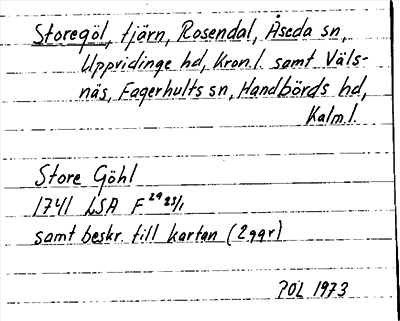 Storegöl, tjärn, Rosendal, Åseda sn,
Uppvidinge hd, Kron.l. samt Väls-
näs, Fagerhults sn, Handbörds hd,
Kalm.l.
Store Göhl
1741 LSA F 29 23/1
samt beskr. till kartan (2 ggr)
POL 1973